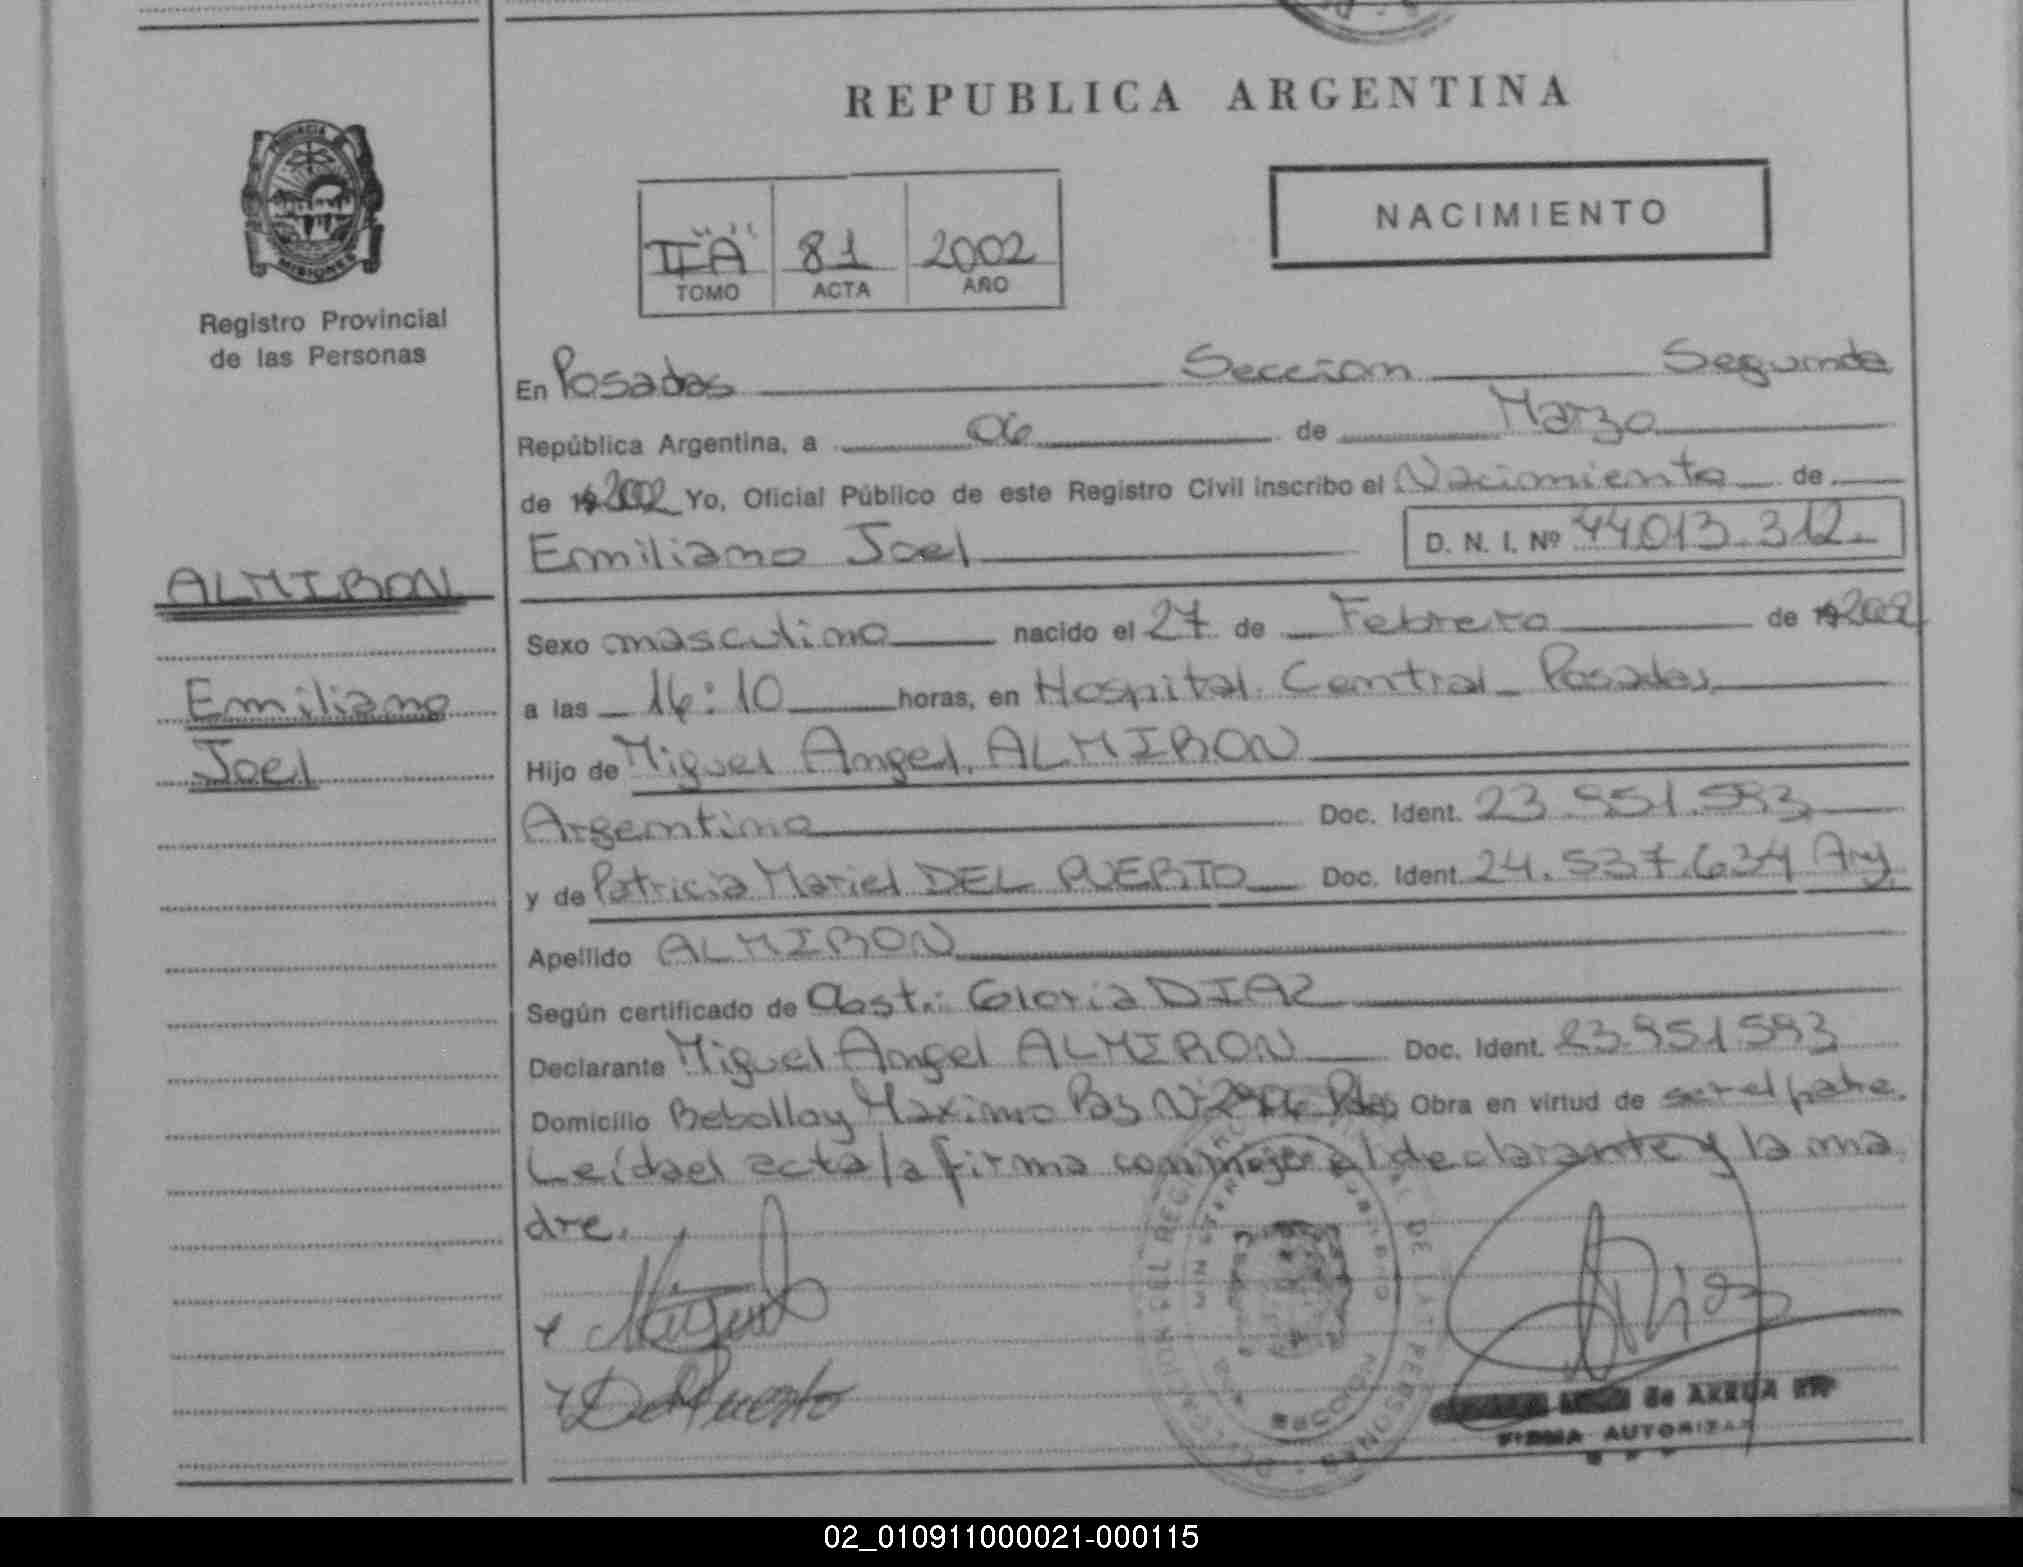 REPUBLICA ARGENTINA
PROVINCIA DE
MISIONES
Registro Provincial
de las Personas
II "A" 81 2002
TOMO ACTA AÑO
NACIMIENTO
En Posadas Seccion Segunda
República Argentina, a 06 de Marzo
de 19 2002 Yo, Oficial Público de este Registro Civil inscribo el Nacimiento de
Emiliano Joel D. N. I. Nº 44.013.312.
ALMIRON
Emiliano
Joel
Sexo masculino nacido el 27 de Febrero de 19 2002
a las 16:10 horas, en Hospital Central Posadas
Hijo de Miguel Angel ALMIRON
Argentino Doc. Ident. 23.951.593
y de Patricia Mariel DEL PUERTO Doc. Ident. 24.537.634 Arg.
Apellido ALMIRON
Según certificado de Obst.: Gloria DIAZ
Declarante Miguel Angel ALMIRON Doc. Ident. 23.951.593
Domicilio Maximo Paz Nº Obra en virtud de ser el padre.
Leída el acta la firma conmigo el declarante y la ma
dre.
Miguel
Del Puerto
de
FIRMA
02_010911000021-000115